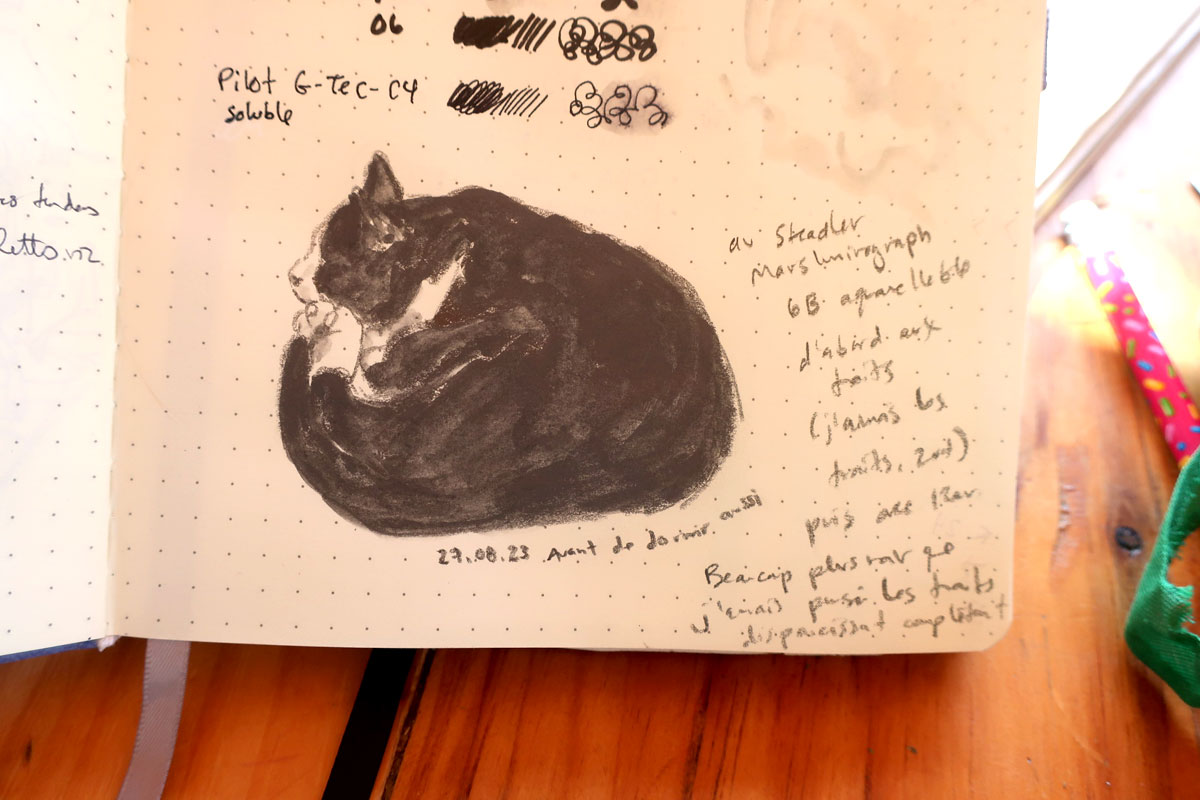 06
Pilot G-Tec-C4
soluble
au Steadler
Mars lumograph
6B aquarelle
d'abord aux
traits
(j'aimais les
traits, zut)
puis avec l'eau
27.08.23 Avant de dormir aussi
Beaucoup plus noir que
j'aurais pensé. Les traits
disparaissent complètement